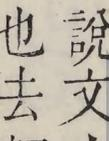 說文
也去